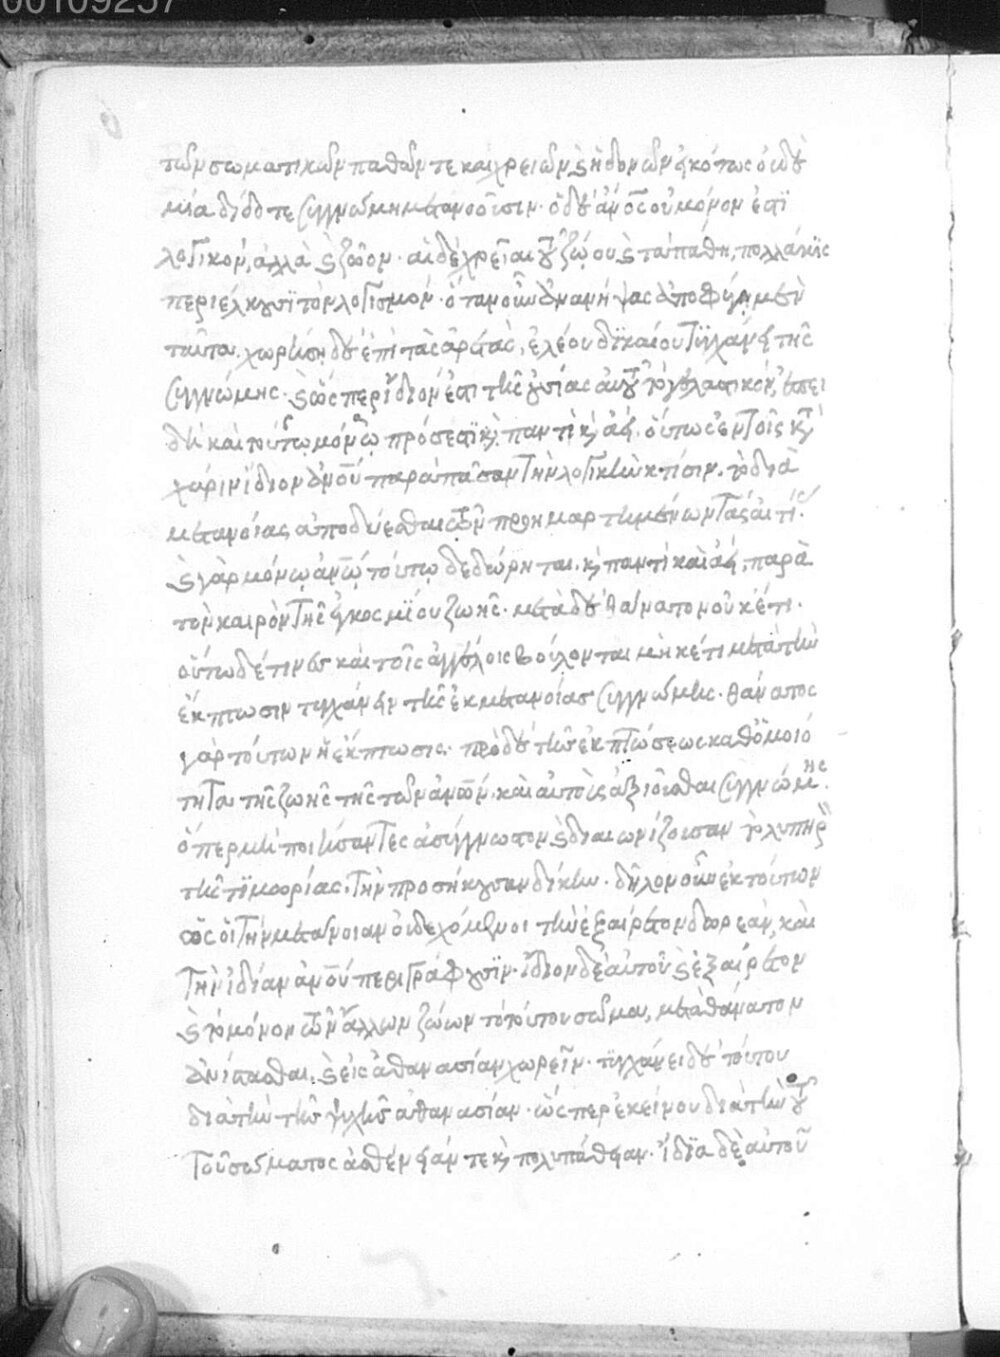 00109257
τῶν σωματικῶν παθῶν τε καὶ χρειῶν καὶ ἡδονῶν εἰκότως οὐδε
μία δίδοται συγγνώμη μετανοοῦσιν· ὁ δὲ ἄνος οὐ μόνον ἐστὶ
λογικὸν, ἀλλὰ καὶ ζῶον· αἱ δὲ χρεῖαι τοῦ ζώου καὶ τὰ πάθη, πολλάκις
περιέλκουσι τὸν λογισμόν· ὅταν οὖν ἀνανήψας ἀποφύγῃ μὲν
ταῦτα, χωρήσῃ δὲ ἐπὶ τὰς ἀρετὰς, ἐλέου δικαίου τυγχάνει τῆς
συγγνώμης· καὶ ὥσπερ ἴδιόν ἐστι τῆς οὐσίας αὐτοῦ τὸ γελαστικὸν, ἐπει
δὴ καὶ τούτῳ μόνῳ πρόσεστι καὶ παντὶ καὶ ἀεί, οὕτως ἐν τοῖς κατὰ
χάριν ἴδιον ἀνου παρὰ πᾶσαν τὴν λογικὴν κτίσιν, τὸ διὰ
μετανοίας ἀπολύεσθαι τῶν προημαρτημένων τὰς αἰτίας
καὶ γὰρ μόνῳ ἀνω τούτῳ δεδώρηται, καὶ παντὶ καὶ ἀεί, παρὰ
τὸν καιρὸν τῆς ἐν κόσμῳ ζωῆς· μετὰ δὲ θάνατον οὐκέτι·
οὕτω δέ τινες καὶ τοῖς ἀγγέλοις βούλονται μηκέτι μετὰ τὴν
ἔκπτωσιν τυγχάνειν τῆς ἐκ μετανοίας συγγνώμης· θάνατος
γὰρ τούτων ἡ ἔκπτωσις· πρὸ δὲ τῆς ἐκπτώσεως καθ' ὁμοιό
τητα τῆς ζωῆς τῆς τῶν ἀνων, καὶ αὐτοὺς ἀξιοῦσθαι συγγνώμης.
ὅπερ μὴ ποιήσαντες ἀσύγγνωστον καὶ διαιωνίζουσαν
τῆς τιμωρίας, τὴν προσήκουσαν δίκην· δῆλον οὖν ἐκ τούτων
ὡς οἱ τὴν μετάνοιαν οὐ δεχόμενοι τὴν ἐξαίρετον δωρεὰν, καὶ
τὴν ἰδίαν ἀνου περιγράφουσιν· ἴδιον δὲ αὐτοῦ καὶ ἐξαίρετον
καὶ τὸ μόνον τῶν ἄλλων ζώων τὸ τούτου σῶμα, μετὰ θάνατον
ἀνίστασθαι, καὶ εἰς ἀθανασίαν χωρεῖν· τυγχάνει δὲ τούτου
διὰ τὴν τῆς ψυχῆς ἀθανασίαν· ὥσπερ ἐκείνου διὰ τὴν
τοῦ σώματος ἀσθένειάν τε καὶ πολυπάθειαν· ἴδια δὲ αὐτοῦ